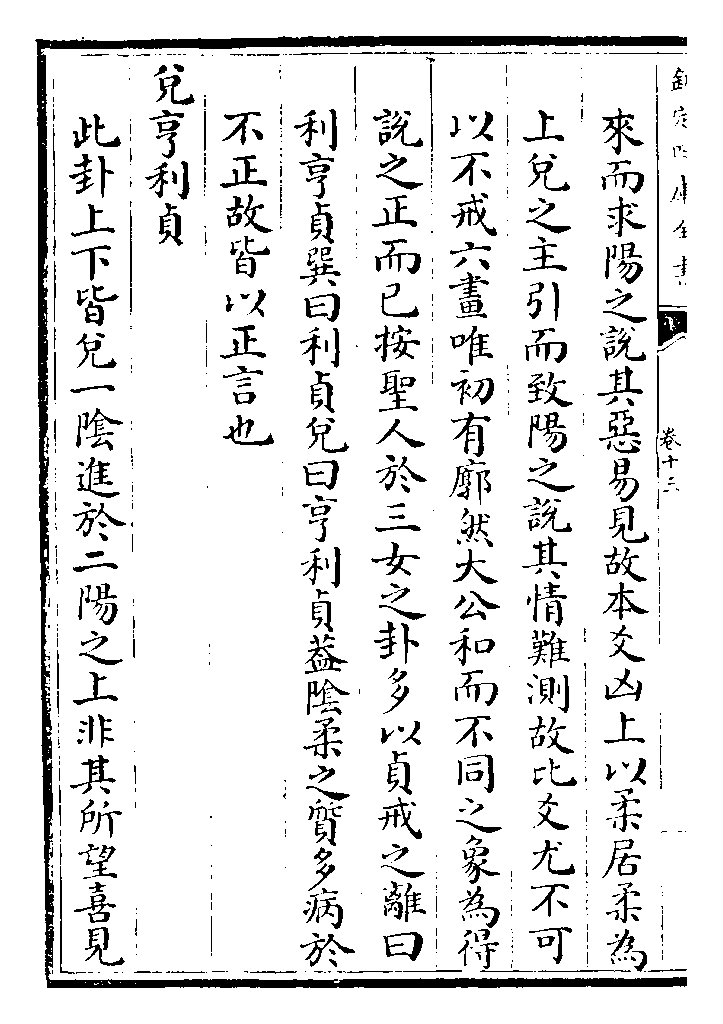 欽定四庫全書
卷十三
來而求陽之說其惡易見故本爻凶上以柔居柔為
上兌之主引而致陽之說其情難測故比爻尤不可
以不戒六畫唯初有廓然大公和而不同之象為得
說之正而已按聖人於三女之卦多以貞戒之離曰
利亨貞巽曰利貞兌曰亨利貞葢陰柔之質多病於
不正故皆以正言也
兌亨利貞
此卦上下皆兌一陰進於二陽之上非其所望喜見